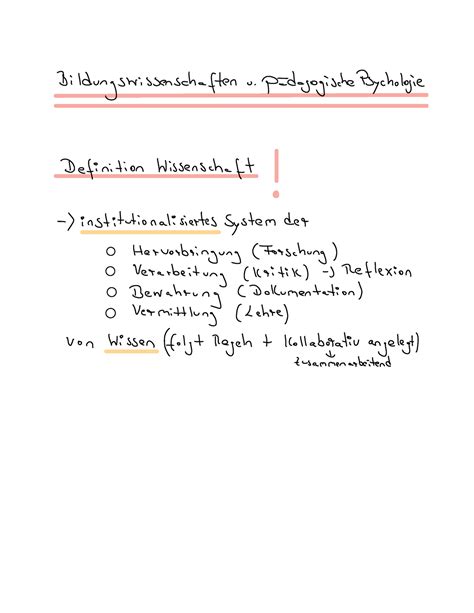 Bildungswissenschaften u. pädagogische Psychologie
Definition Wissenschaft !
-> institutionalisiertes System der
○ Hervorbringung (Forschung)
○ Verarbeitung (Kritik) -> Reflexion
○ Bewahrung (Dokumentation)
○ Vermittlung (Lehre)
von Wissen (folgt Regeln + Kollaborativ angelegt)
↓
zusammenarbeitend